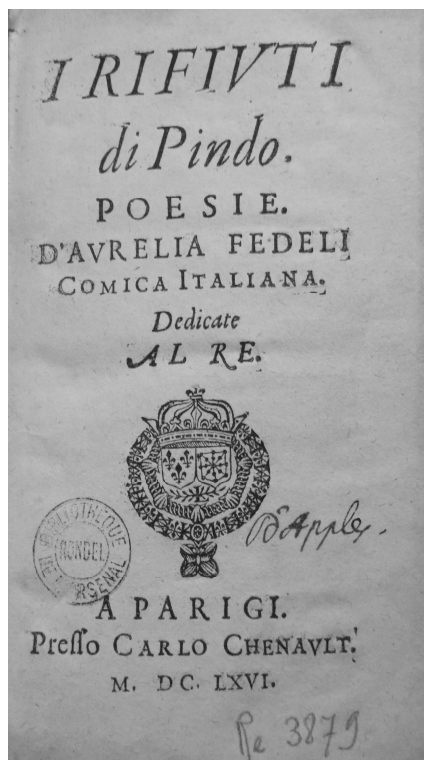 I RIFIVTI
di Pindo.
POESIE.
D'AVRELIA FEDELI
COMICA ITALIANA.
Dedicate
AL RE.
BIBLIOTHEQUE
RONDEL
DE L'ARSENAL
A PARIGI.
Preſſo CARLO CHENAVLT.
M. DC. LXVI.
Re 3879